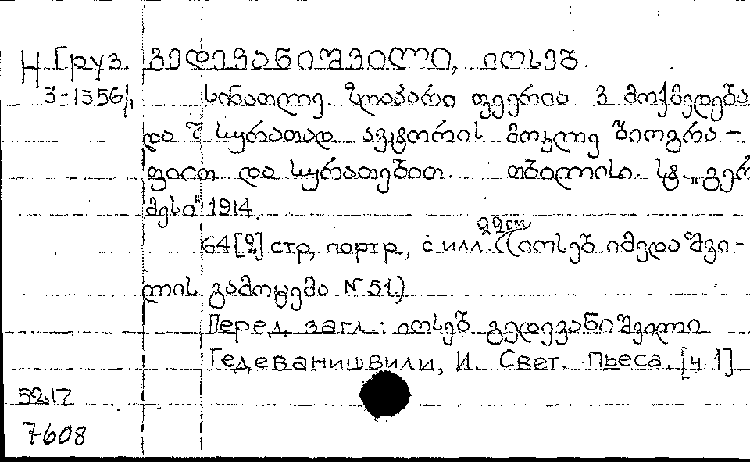 Н Груз. გედევანიშვილი, იოსებ.
3-1356/1 სინათლე. ზღაპარი ფეერია 3 მოქმედება
და 7 სურათად ავტორის მოკლე ბიოგრა-
ფიით და სურათებით. თბილისი. სტ. „გერ
მესი" 1914.
64[2] стр, портр, с илл. 22см (იოსებ იმედაშვი-
ლის გამოცემა N 51)
Перед загл: იოსებ გედევანიშვილი
Гедеванишвили, И. Свет. Пьеса. [ч 1]
52.17
7608